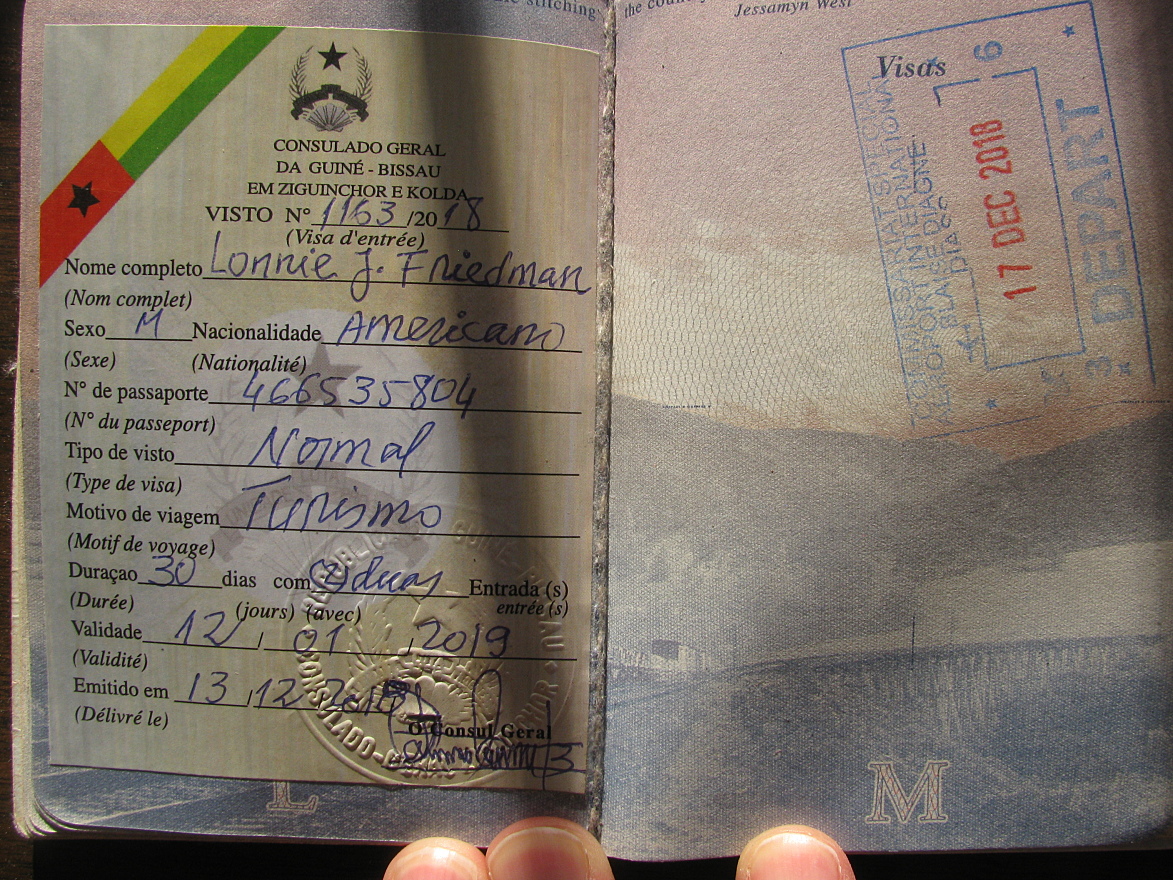 the stitching
CONSULADO GERAL
DA GUINÉ - BISSAU
EM ZIGUINCHOR E KOLDA
VISTO N° 1163 /20 18
(Visa d'entrée)
Nome completo Lonnie J. Friedman
(Nom complet)
Sexo M Nacionalidade Americano
(Sexe) (Nationalité)
N° de passaporte 466535804
(N° du passeport)
Tipo de visto Normal
(Type de visa)
Motivo de viagem Turismo
(Motif de voyage)
Duraçao 30 dias com (2) duas Entrada (s)
(Durée) (jours) (avec) entrée (s)
Validade 12 / 01 , 2019
(Validité)
Emitido em 13 , 12 , 2018
(Délivré le)
O Consul Geral
CONSULADO
L
the
Jessamyn West
Visas
COMMISSARIAT SPECIAL
AEROPORT INTERNATIONAL
BLAISE DIAGNE
DIASS
6
17 DEC 2018
3 DEPART
M